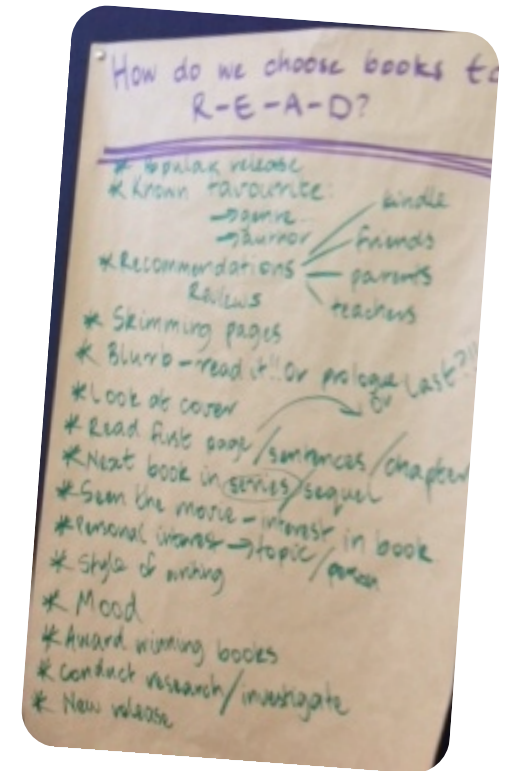 How do we choose books to
R-E-A-D?
* Popular release
* Known favourite:
→genre
→author
kindle
friends
* Recommendations
parents
Reviews
teachers
* Skimming pages
* Blurb - read it!! Or prologue
Or last?!!
* Look at cover
* Read first page/sentences/chapter
* Next book in series/sequel
* Seen the movie - interest in book
* Personal interest → topic/person
* Style of writing
* Mood
* Award winning books
* Conduct research/investigate
* New release